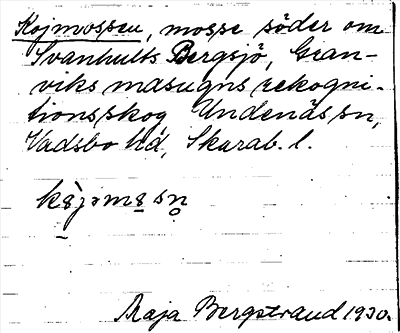 Kojmossen, mosse söder om
Svanhults Bergsjö, Gran-
viks masugns rekogni-
tionsskog Undenäs sn,
Vadsbo hd, Skarab. l.
Maja Bergstrand 1930.